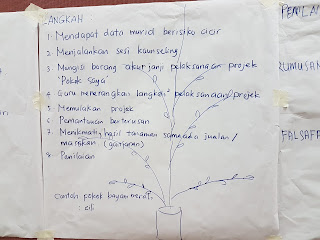 LANGKAH
1. Mendapat data murid berisiko cicir
2. Menjalankan sesi kaunseling
3. Mengisi borang akur janji pelaksanaan projek
'Pokok Saya'
4. Guru menerangkan langkah² pelaksanaan projek
5. Memulakan projek
6. Pemantauan berterusan
7. Menikmati hasil tanaman samada jualan /
masakan (ganjaran)
8. Penilaian
Contoh pokok bayam merah
: cili
PENILA
RUMUSAN
FALSAFA